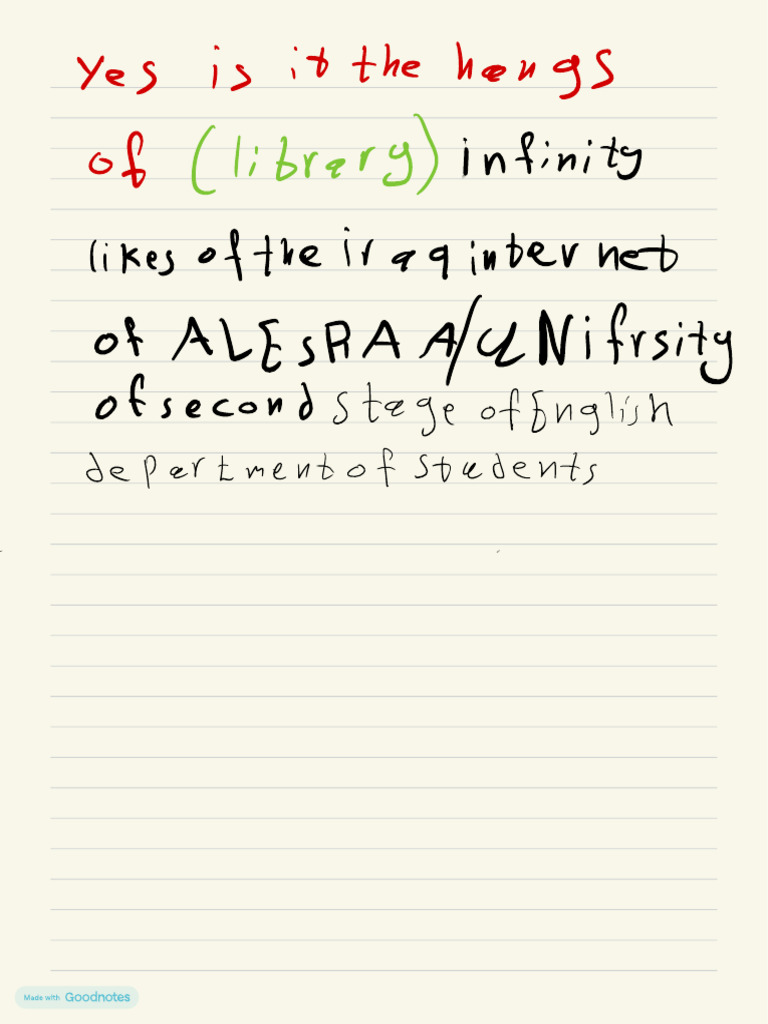 Yes is it the hangs
of (library) infinity
likes of the iraq internet
of ALEsRAA/UNifrsity
of second stage of English
department of students
Made with Goodnotes